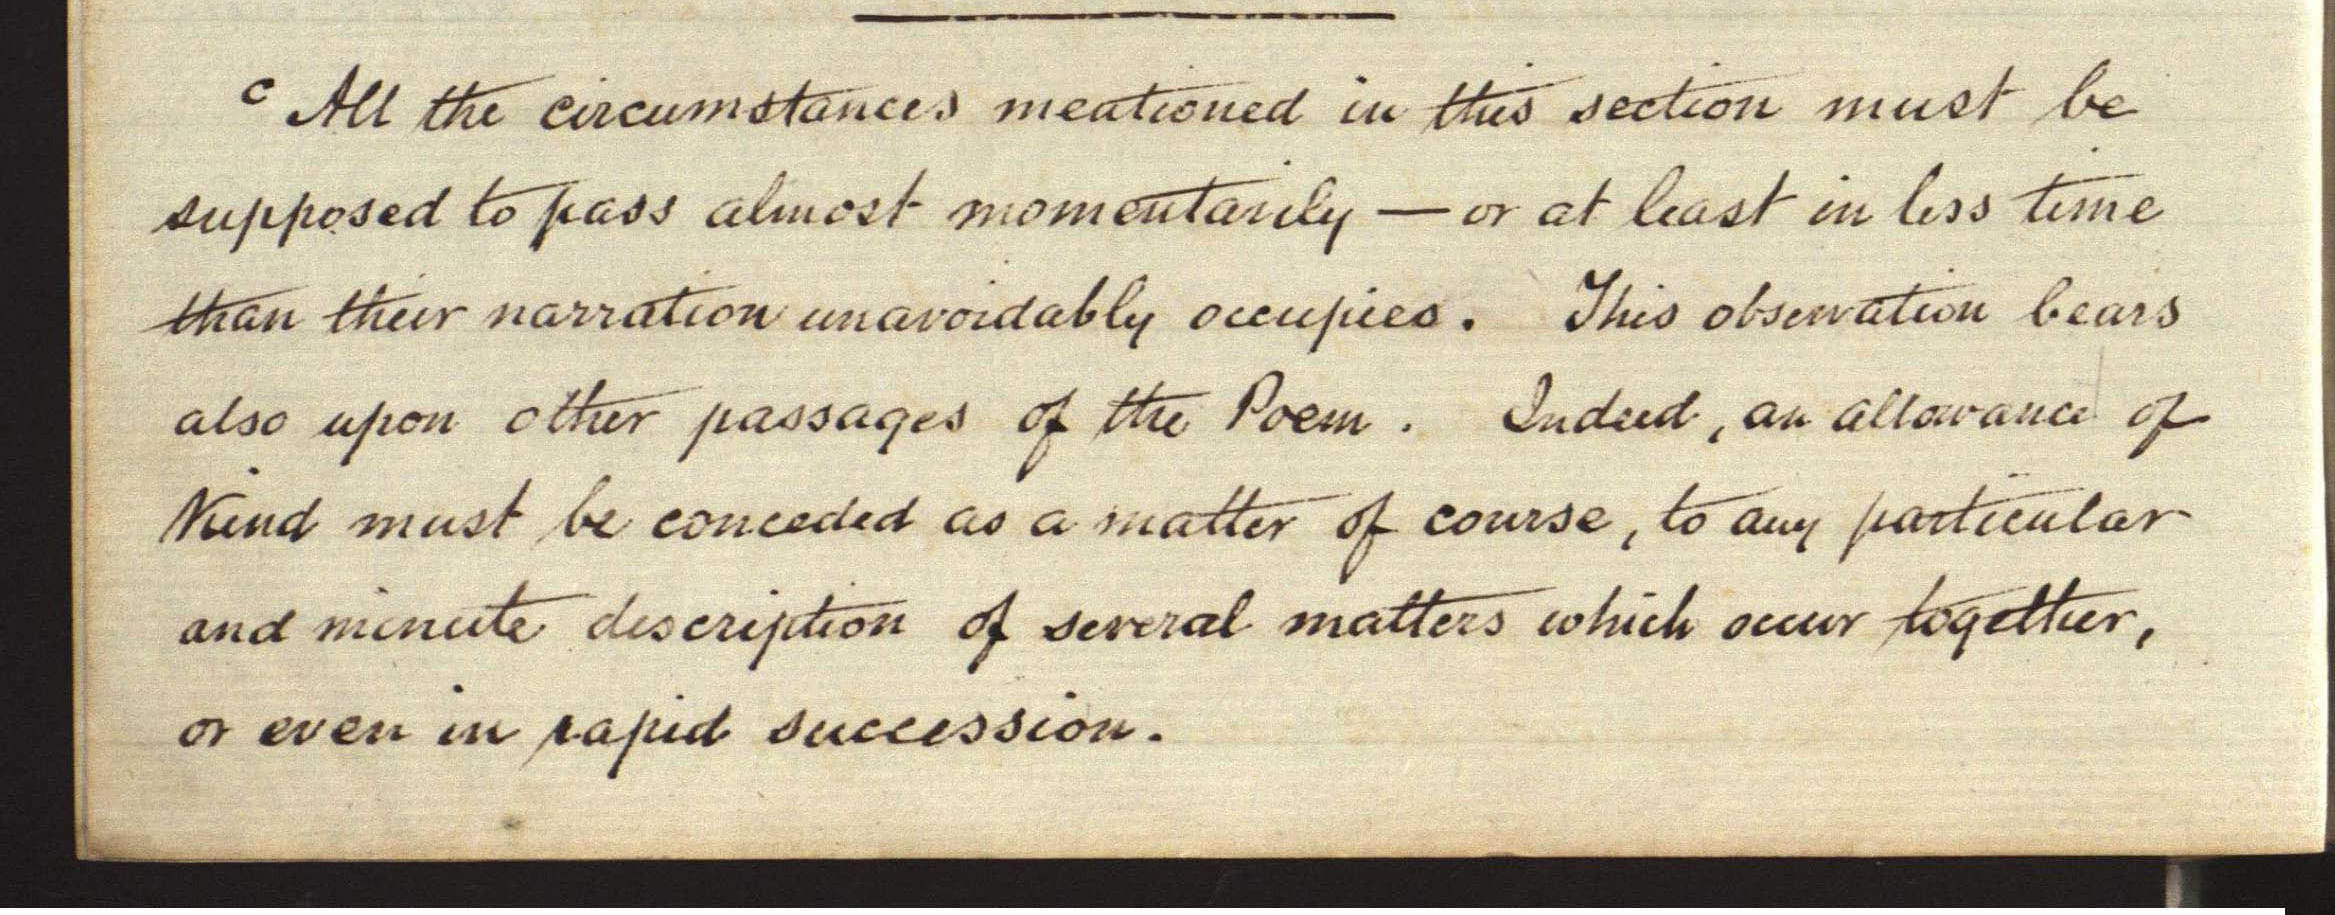 c All the circumstances mentioned in this section must be
supposed to pass almost momentarily — or at least in less time
than their narration unavoidably occupies. This observation bears
also upon other passages of the Poem. Indeed, an allowance of
Kind must be conceded as a matter of course, to any particular
and minute description of several matters which occur together,
or even in rapid succession.